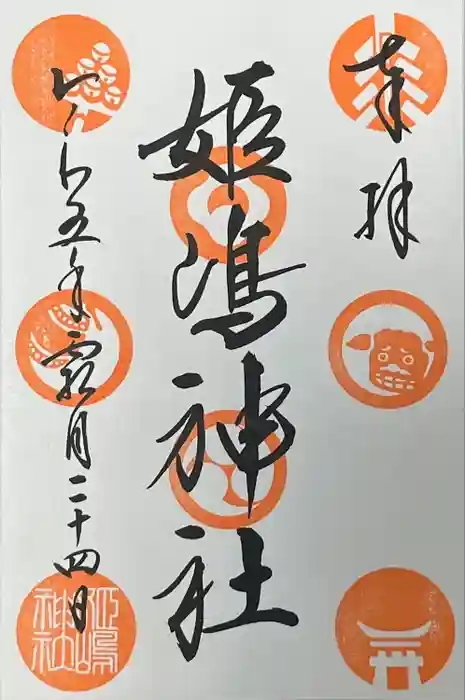 奉拝
姫嶋神社
令和五年霜月二十四日
姫嶋神社